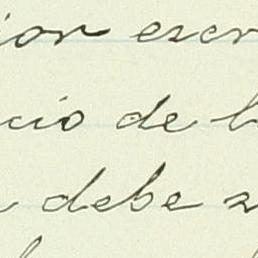 ior escr
cio de l
debe